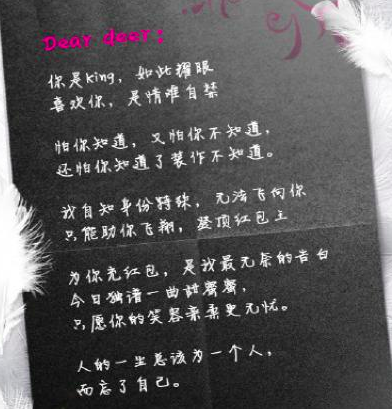 Dear deer:
你是king，如此耀眼
喜欢你，是情难自禁
怕你知道，又怕你不知道，
还怕你知道了装作不知道。
我自知身份特殊，无法飞向你
只能助你飞翔，登顶红包王
为你充红包，是我最无奈的告白
今日独谱一曲甜蜜蜜，
只愿你的笑容亲柔更无忧。
人的一生总该为一个人，
而忘了自己。